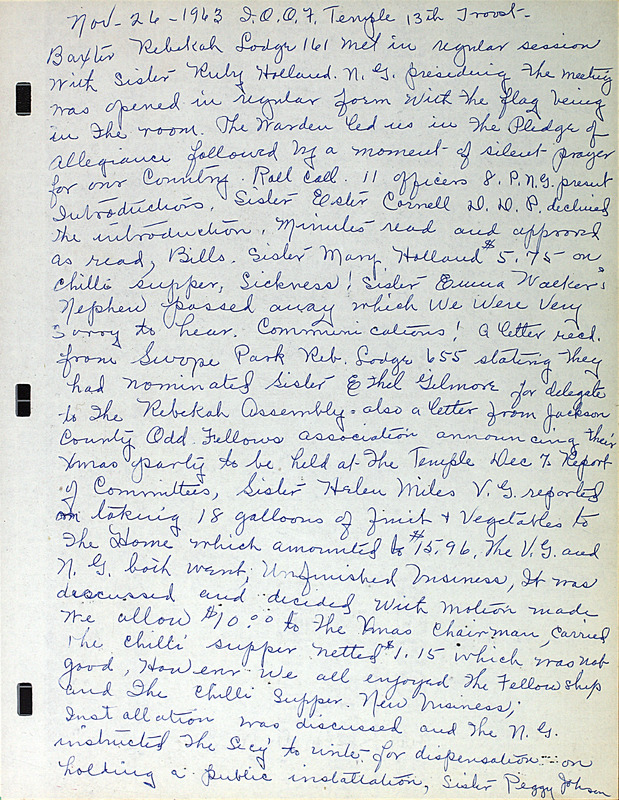 Nov- 26 - 1963 I.O.O.F. Temple 13th Troost-
Baxter Rebekah Lodge 161 met in regular session
with Sister Ruby Holland. N. G. presiding The meeting
was opened in regular form with the flag being
in The room. The Warden led us in The Pledge of
Allegiance followed by a moment of silent prayer
for our Country. Roll call. 11 officers 8. P.N.G. present
Introductions. Sister Ester Cornell D. D. P. declined
The introduction. Minutes read and approved
as read, Bills. Sister Mary Holland $5.75 on
chilli supper, Sickness! Sister Emma Walker's
Nephew passed away which we were very
Sorry to hear. Communications! A letter recd.
from Swope Park Reb. Lodge 655 stating They
had nominated Sister Ethel Gilmore for delegate
to The Rebekah Assembly - also a letter from Jackson
County Odd Fellows association announcing Their
Xmas party to be held at The Temple Dec 7. Report
of Committees, Sister Helen Miles V. G. reported
on taking 18 galloons of fruit & Vegetables to
The Home which amounted to $15.96. The V.G. and
N. G. both went, Unfinished business, It was
discussed and decided with motion made
we allow $10.00 to The Xmas Chairman, carried
The chilli supper netted $1.15 which was not
good, However we all enjoyed The Fellowship
and The Chilli Supper. New business;
Installation was discussed and The N. G.
instructed The Secy to write for dispensation on
holding a public installation, Sister Peggy Johnson